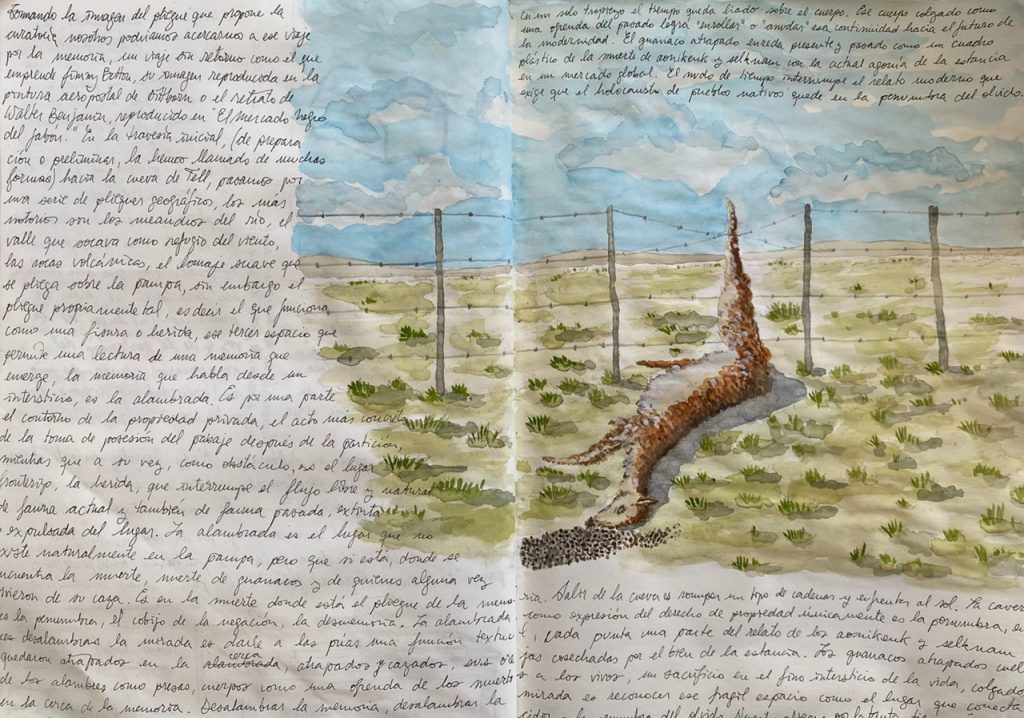 Tomando la imagen del pliegue que propone la
curatoria nosotros podríamos acercarnos a ese viaje
por la memoria, un viaje sin retorno como el que
emprende Jimmy Button, su imagen reproducida en la
pintura aeropostal de Dittborn o el retrato de
Walter Benjamin, reproducido en "El mercado negro
del jabón." En la travesía inicial, (de prepara
ción o preliminar, la hemos llamado de muchas
formas) hacia la cueva de Fell, pasamos por
una serie de pliegues geográficos, los más
notorios son los meandros del río, el
valle que socava como refugio del viento,
las rocas volcánicas, el lomaje suave que
se pliega sobre la pampa, sin embargo el
pliegue propiamente tal, es decir el que funciona
como una fisura o herida, ese tercer espacio que
permite una lectura de una memoria que
emerge, la memoria que habla desde un
intersticio, es la alambrada. Es por una parte
el contorno de la propiedad privada, el acto más concreto
de la toma de posesión del paisaje después de la partición,
mientras que a su vez, como obstáculo, es el lugar
fronterizo, la herida, que interrumpe el flujo libre y natural
de fauna actual y también de fauna pasada, extinta
o expulsada del lugar. La alambrada es el lugar que no
existe naturalmente en la pampa, pero que si está, donde se
encuentra la muerte, muerte de guanacos y de quienes alguna vez
vivieron de su caza. Es en la muerte donde está el pliegue de la memo-
es la penumbra, el cobijo de la negación, la desmemoria. La alambrada
es desalambrar la mirada es darle a las púas una función
quedaron atrapados en la cerca alambrada, atrapados y cazados, sus
de los alambres como presas, cuerpos como una ofrenda de los muertos
en la cerca de la memoria. Desalambrar la memoria, desalambrar la
En un solo tropiezo el tiempo queda liado sobre el cuerpo. Ese cuerpo colgado como
una ofrenda del pasado logra "enrollar" o "anudar" esa continuidad hacia el futuro de
la modernidad. El guanaco atrapado enreda presente y pasado como un cuadro
plástico de la muerte de aonikenk y selknam con la actual agonía de la estancia
en un mercado global. El nudo de tiempo interrumpe el relato moderno que
exige que el holocausto de pueblo nativos quede en la penumbra del olvido.
ria. Salir de la cueva es romper un tipo de cadenas y enfrentar al sol. La caver
como expresión del derecho de propiedad únicamente es la penumbra, en
, cada punta una parte del relato de los aonikenk y selknam
jas cosechadas por el bien de la estancia. Los guanacos atrapados cuel
s a los vivos, un sacrificio en el fino intersticio de la vida, colgado
mirada es reconocer ese frágil espacio como el lugar que conecta
la penumbra del olvido